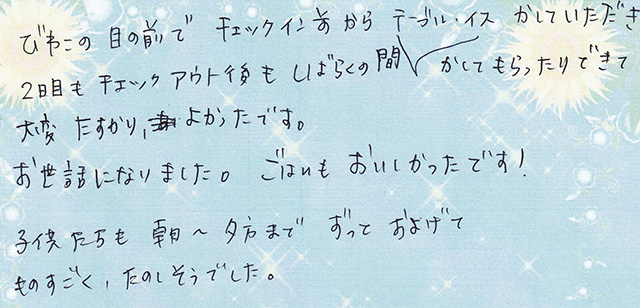 びわこの目の前で チェックイン前から テーブル・イス かしていただき
2日目もチェックアウト後も しばらくの間 かしてもらったりできて
大変 たすかり、よかったです。
お世話になりました。 ごはんも おいしかったです!
子供たちも 朝〜夕方まで ずっと およげて
ものすごく、たのしそうでした。